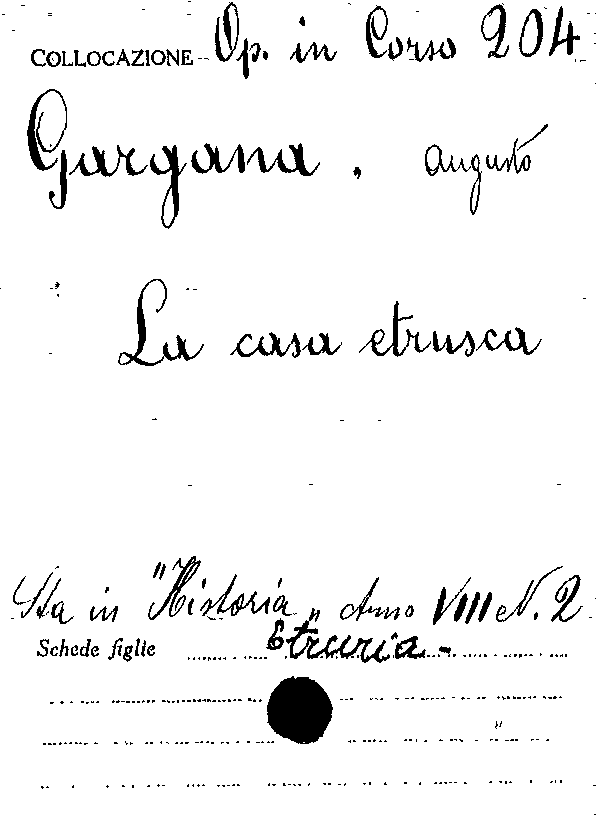 COLLOCAZIONE Op. in Corso 204
Gargana, Augusto
La casa etrusca
Sta in "Historia" Anno VIII N. 2
Schede figlie Etruria -